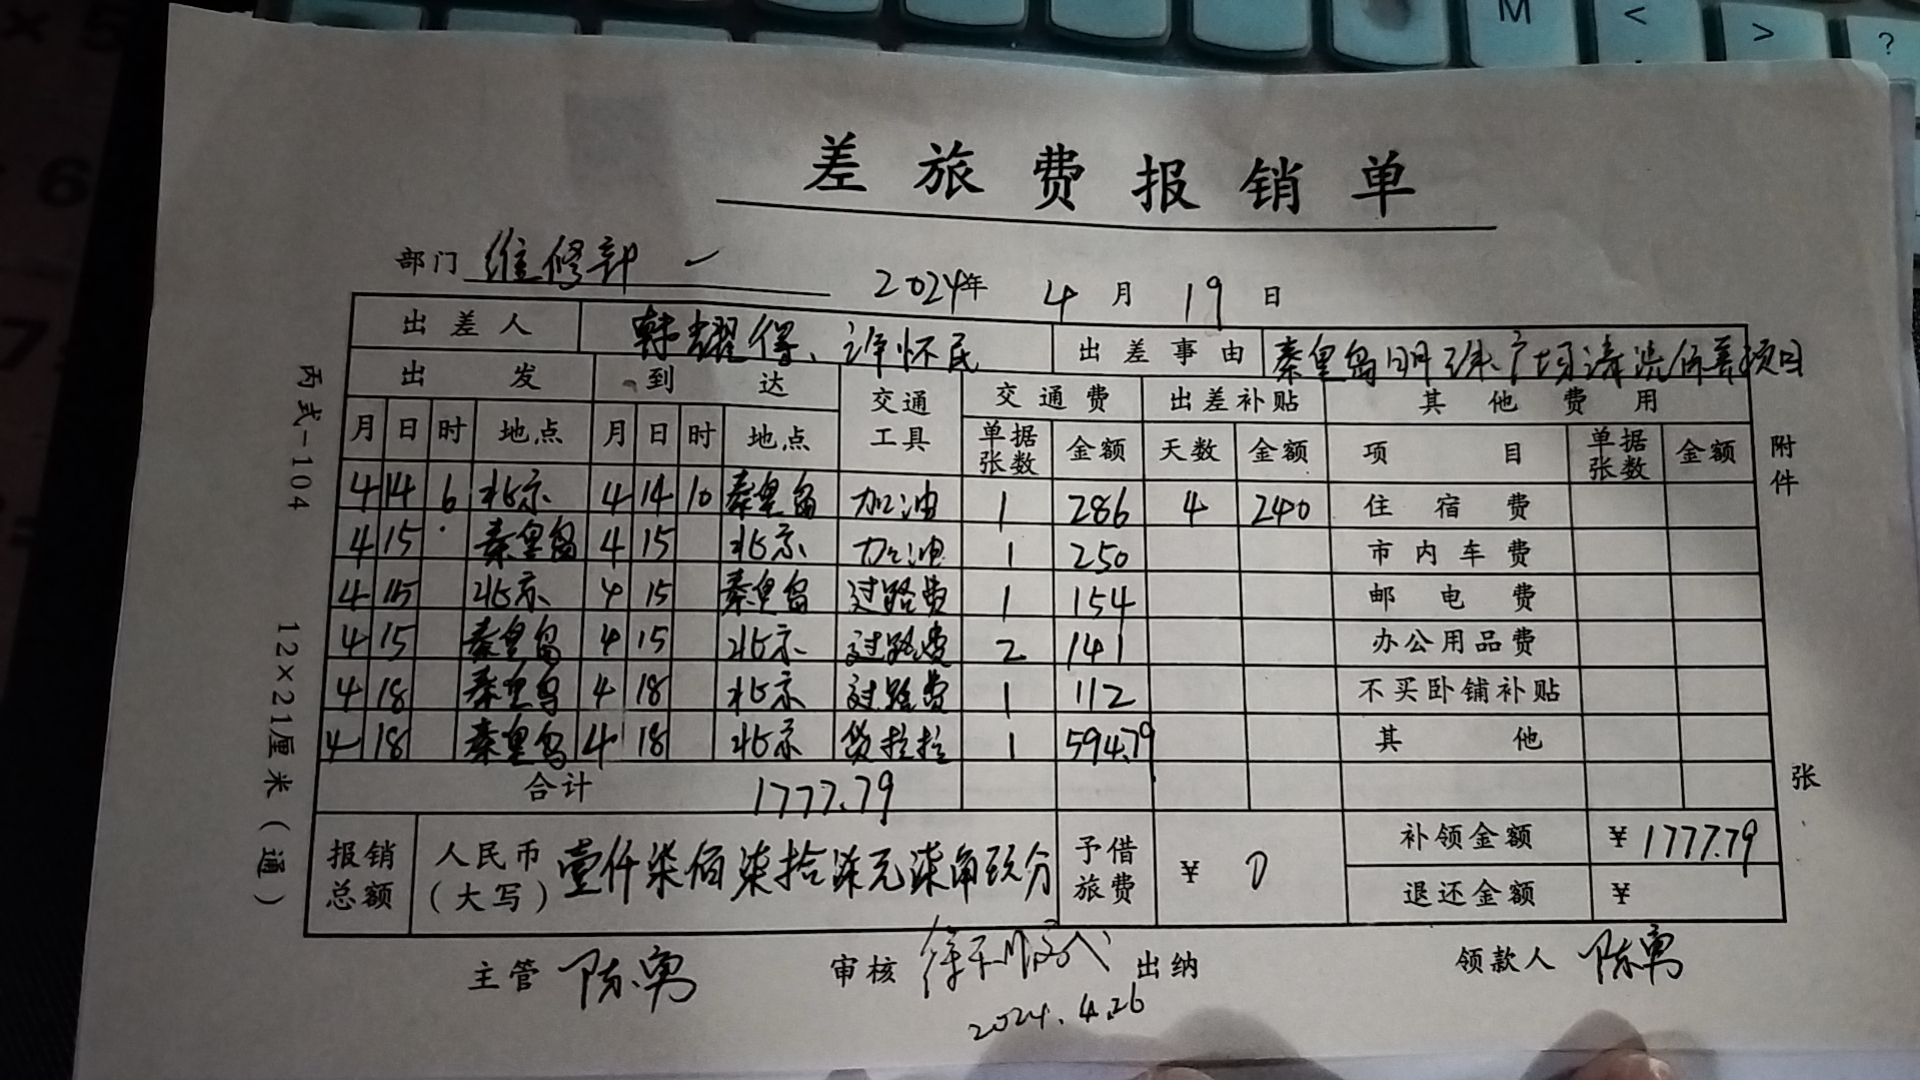 差旅费报销单
部门 维修部 ✓ 2024年 4月 19日
出差人 韩耀得、许怀民 出差事由 秦皇岛明珠广场清洗保养项目
出发 到达 交通工具 交通费 出差补贴 其他费用
月 日 时 地点 月 日 时 地点 单据张数 金额 天数 金额 项目 单据张数 金额
4 14 6 北京 4 14 10 秦皇岛 加油 1 286 4 240 住宿费
4 15 秦皇岛 4 15 北京 加油 1 250 市内车费
4 15 北京 4 15 秦皇岛 过路费 1 154 邮电费
4 15 秦皇岛 4 15 北京 过路费 2 141 办公用品费
4 18 秦皇岛 4 18 北京 过路费 1 112 不买卧铺补贴
4 18 秦皇岛 4 18 北京 货拉拉 1 594.79 其他
合计 1777.79
报销总额 人民币(大写) 壹仟柒佰柒拾柒元柒角玖分 予借旅费 ¥ 0 补领金额 ¥1777.79
退还金额 ¥
主管 陈勇 审核 出纳 领款人 陈勇
2024.4.26
丙式-104 12×21厘米(通)
附件 张
M
<
>
?